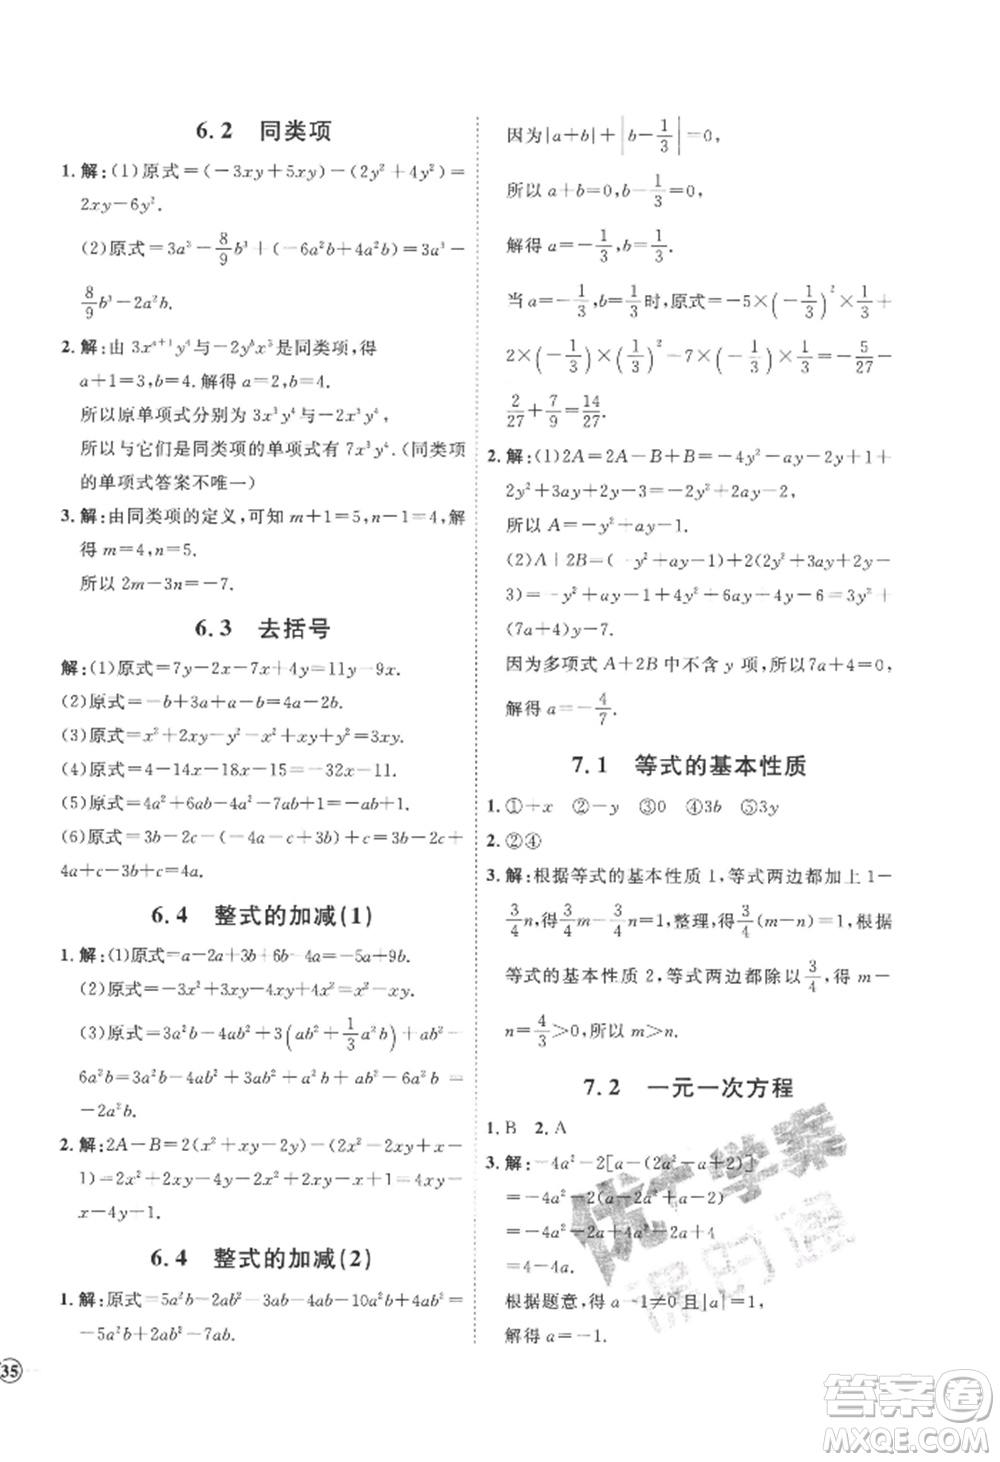 6.2 同类项
1. 解:(1)原式=(-3xy+5xy)-(2y²+4y²)=
2xy-6y².
(2)原式=3a³-8/9b³+(-6a²b+4a²b)=3a³-
8/9b³-2a²b.
2. 解:由3xᵃ⁺¹y⁴与-2yᵇx³是同类项,得
a+1=3,b=4.解得a=2,b=4.
所以原单项式分别为3x³y⁴,-2x³y⁴,
所以与它们是同类项的单项式有7x³y⁴.(同类项
的单项式答案不唯一)
3. 解:由同类项的定义,可知m+1=5,n-1=4,解
得m=4,n=5.
所以2m-3n=-7.
6.3 去括号
解:(1)原式=7y-2x-7x+4y=11y-9x.
(2)原式=-b+3a+a-b=4a-2b.
(3)原式=x²+2xy-y²-x²-2xy+y²=0.
(4)原式=4-14x-18x-15x²=-15x²-32x+4.
(5)原式=4a²+6ab-4a²-7ab+1=-ab+1.
(6)原式=3b-2c-(-4a+c+3b)+c=3b-2c+
4a-c-3b+c+c=4a.
6.4 整式的加减(1)
1. 解:(1)原式=a-2a+3b+6b-4a=-5a+9b.
(2)原式=-3x²+2xy+4x²-3xy=x²-xy.
(3)原式=3a²b-2[2ab²+3(ab²+1/3a²b)+ab²-
6a²b]=3a²b-4ab²-6ab²-2a²b-2ab²-6a²b=
-2ab²+a²b.
2. 解:2A-B=2(x²+xy-2y)-(2x²-2xy+x-
1)=2x²+2xy-4y-2x²+2xy-x+1=4xy-
x-4y+1.
6.4 整式的加减(2)
1. 解:原式=5a²b-2ab²-3ab-4ab-10a²b+4ab²=
-5a²b+2ab²-7ab.
因为|a+b|+|b-1/3|=0,
所以a+b=0,b-1/3=0.
解得a=-1/3,b=1/3.
当a=-1/3,b=1/3时,原式=-5×(-1/3)²×1/3+
2×(-1/3)×(1/3)²-7×(-1/3)×1/3=-5/27-
2/27+7/9=14/27.
2. 解:(1)2A=2A-B+B=-4y²-ay-2y+1+
2y²+3ay+2y-3=-2y²+2ay-2,
所以A=-y²+ay-1.
(2)A+2B=(-y²+ay-1)+2(2y²+3ay+2y-
3)=-y²+ay-1+4y²+6ay+4y-6=3y²+
(7a+4)y-7.
因为多项式A+2B中不含y项,所以7a+4=0,
解得a=-4/7.
7.1 等式的基本性质
1. ①+x ②-y ③0 ④3b ⑤3y
2. ②④
3. 解:根据等式的基本性质1,等式两边都加上1-
3/4n,得3/4m-3/4n=1,整理,得3/4(m-n)=1,根据
等式的基本性质2,等式两边都除以3/4,得m-
n=4/3>0,所以m>n.
7.2 一元一次方程
1. B 2. A
3. 解:-4a²-2[a-(2a²-a+2)]
=-4a²-2(a-2a²+a-2)
=-4a²-2a+4a²-2a+4
=-4a+4.
根据题意,得a-1≠0且|a|=1,
解得a=-1.
35
优+学案
课时通
答案卷
MXQE.COM